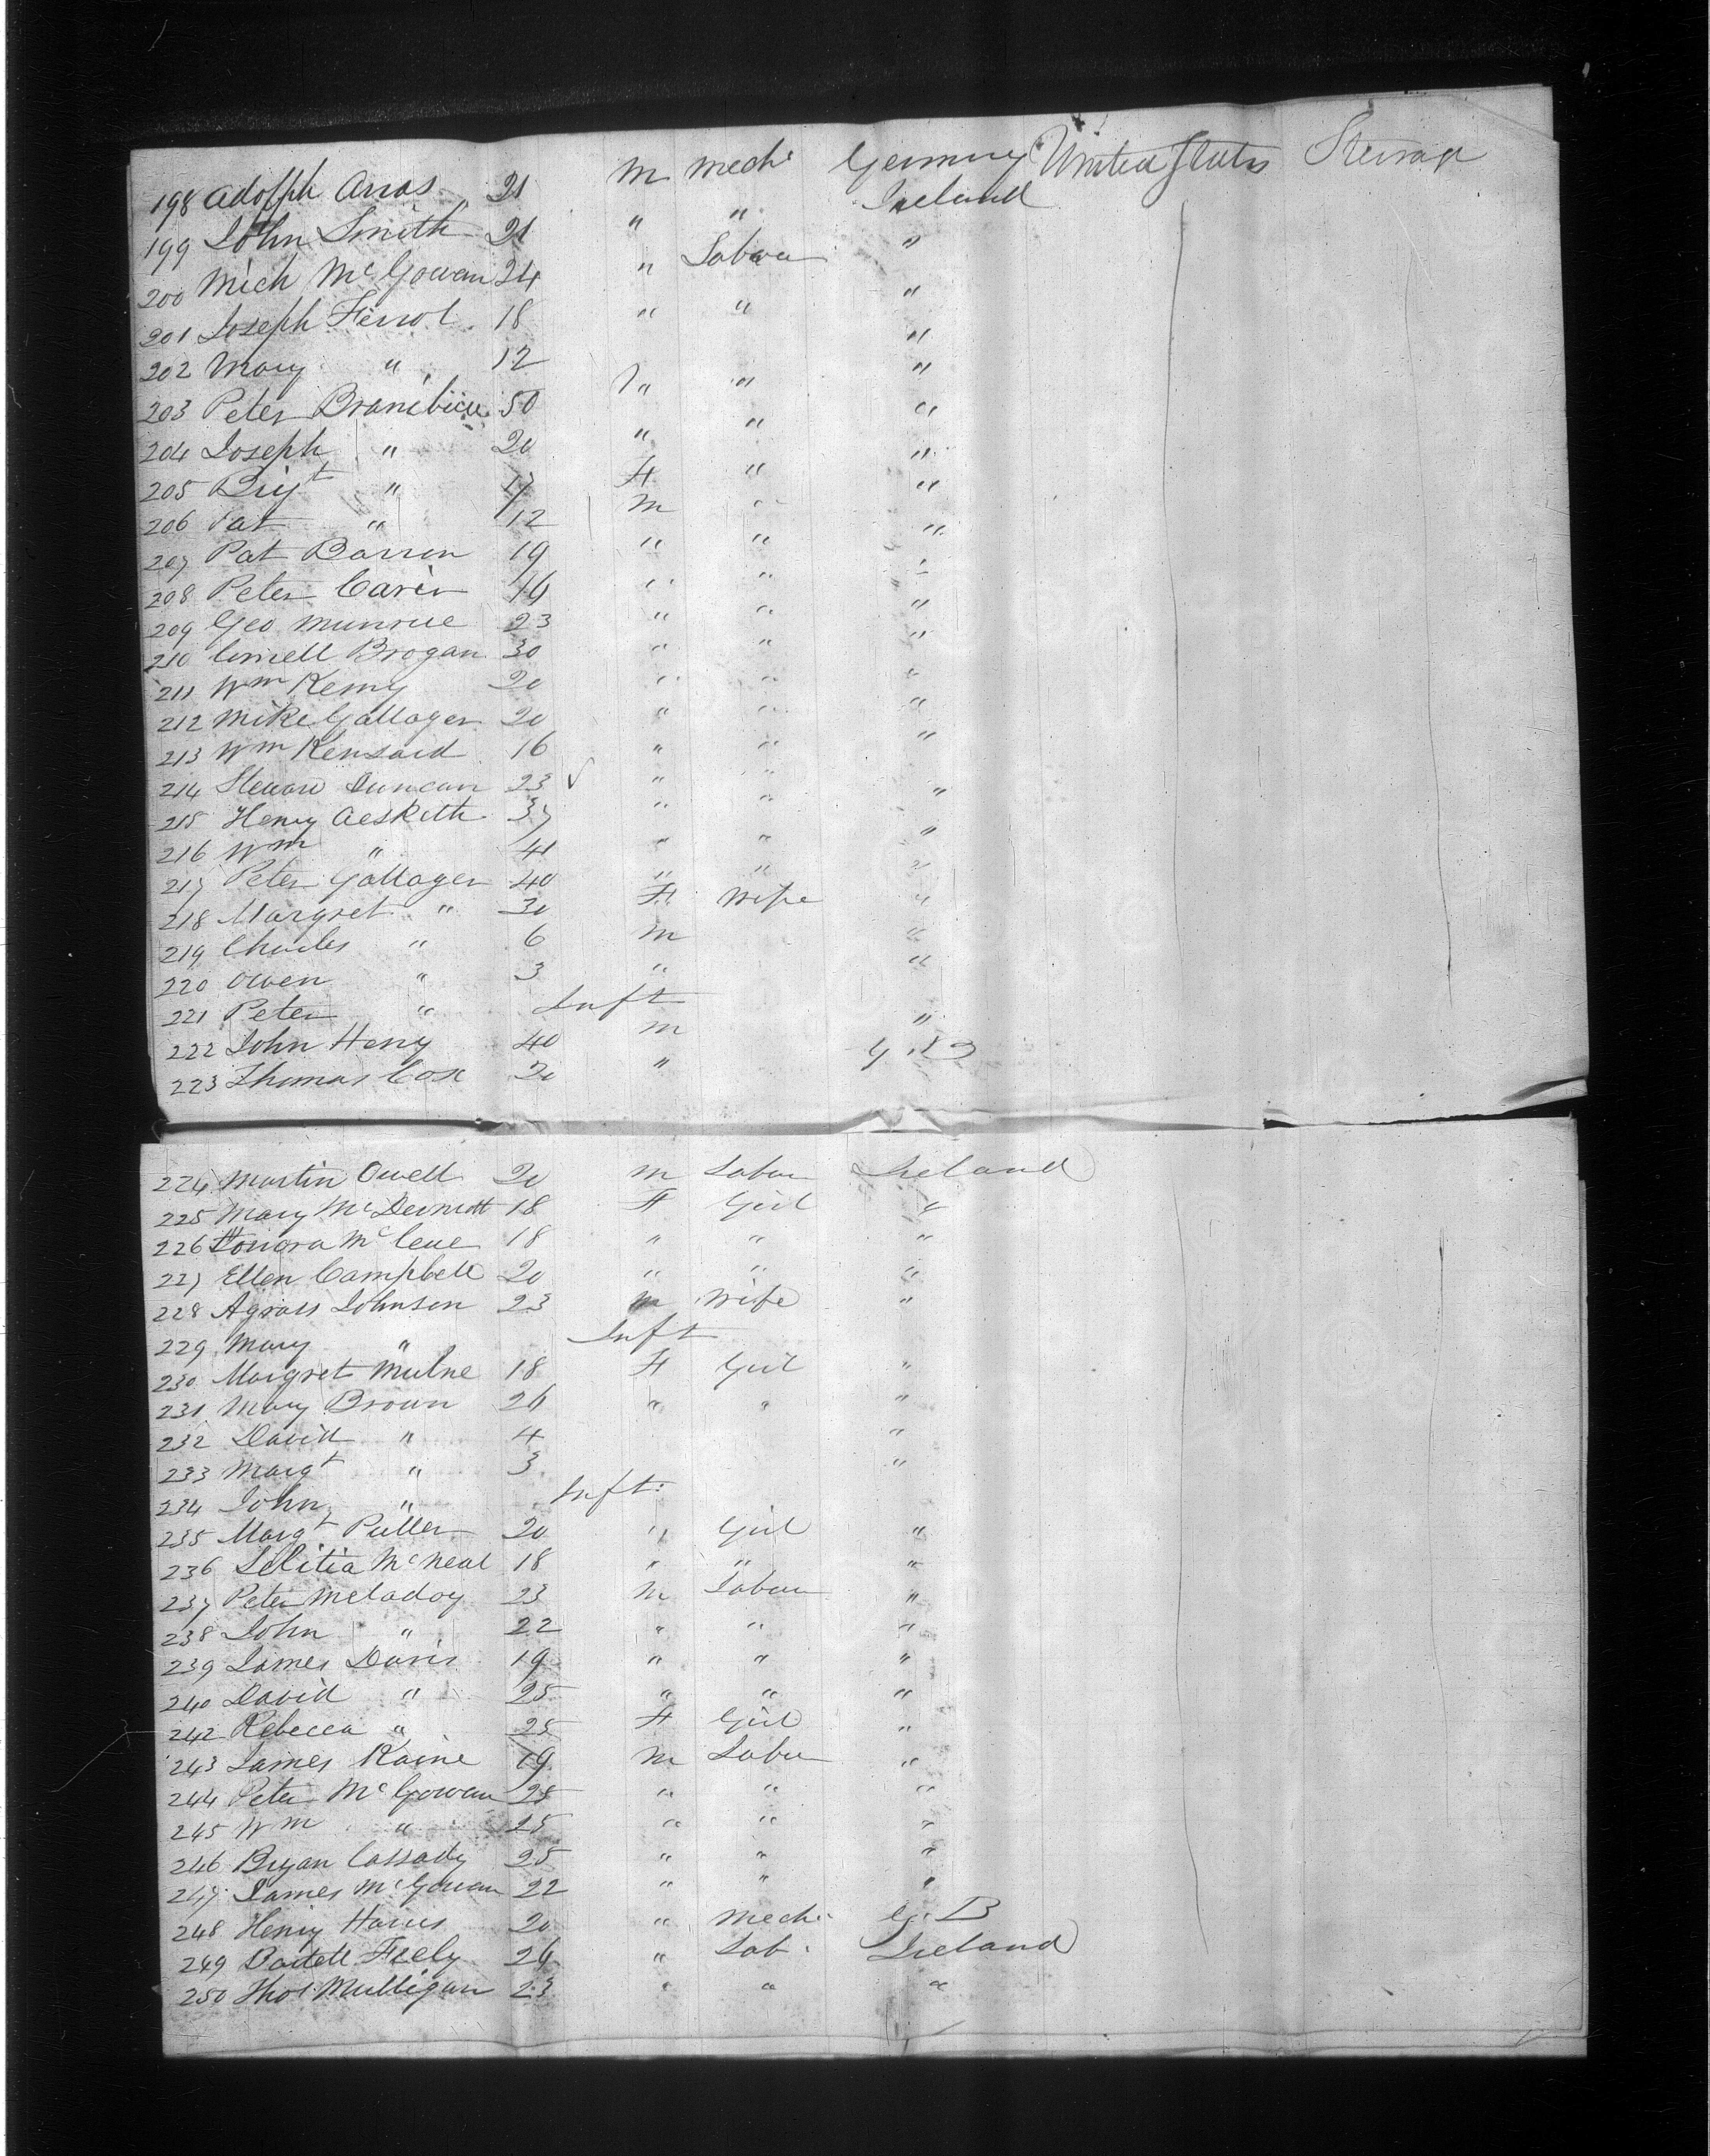 198 Adolph Arras 21 M Mech. Germany United States Steerage
199 John Smith 21 " " Ireland
200 Mich McGowan 24 " Labou "
201 Joseph Ferrol 18 " " "
202 Mary " 12 "
203 Peter 50 " " "
204 Joseph " 20 " " "
205 Brigt " 17 F " "
206 Pat " 12 M " "
207 Pat Barren 19 " " "
208 Peter Carin " " "
209 Geo Munroe 23 " " "
210 Connell Brogan 30 " " "
211 Wm Kenny 20 " " "
212 Mike Gallager 20 " " "
213 Wm Kensaid 16 " " "
214 Steward Duncan 23 ✓ " " "
215 Henry Aeskith 37 " " "
216 Wm " 41 " " "
217 Peter Gallager 40 " " "
218 Margret " 30 F Wife "
219 Charles " 6 M "
220 Owen " 3 " "
221 Peter " Inft
222 John Heny 40 M "
223 Thomas Cox 20 " G. B
224 Martin Owell 20 M Labou Ireland
225 Mary McDermott 18 F Girl "
226 Honora McCeue 18 " " "
227 Ellen Campbell 20 " " "
228 Agness Johnson 23 M Wife "
229 Mary " Inft
230 Margret Mulne 18 F Girl "
231 Mary Brown 26 " " "
232 David " 4 "
233 Margt " 3 "
234 John " Inft.
235 Margt Puller 20 " Girl "
236 Letitia McNeal 18 " " "
237 Peter Meladoy 23 M Labou "
238 John " 22 " " "
239 James Davis 19 " " "
240 David " 25 " " "
242 Rebecca " 25 F Girl "
243 James Kaine 19 M Labou "
244 Peter McGowan 25 " " "
245 Wm " 25 " " "
246 Bryan Cassady 25 " " "
247 James McGowan 22 " " "
248 Henry Harris 20 " Mech. G. B
249 Bartell Feely 26 " Lab. Ireland
250 Thos Mulligan 23 " " "